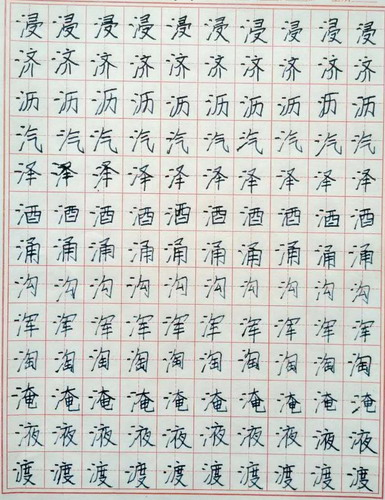 浸浸浸浸浸浸浸浸浸浸
济济济济济济济济济济
沥沥沥沥沥沥沥沥沥沥
汽汽汽汽汽汽汽汽汽汽
泽泽泽泽泽泽泽泽泽泽
酒酒酒酒酒酒酒酒酒酒
涌涌涌涌涌涌涌涌涌涌
沟沟沟沟沟沟沟沟沟沟
浑浑浑浑浑浑浑浑浑浑
淘淘淘淘淘淘淘淘淘淘
淹淹淹淹淹淹淹淹淹淹
液液液液液液液液液液
渡渡渡渡渡渡渡渡渡渡